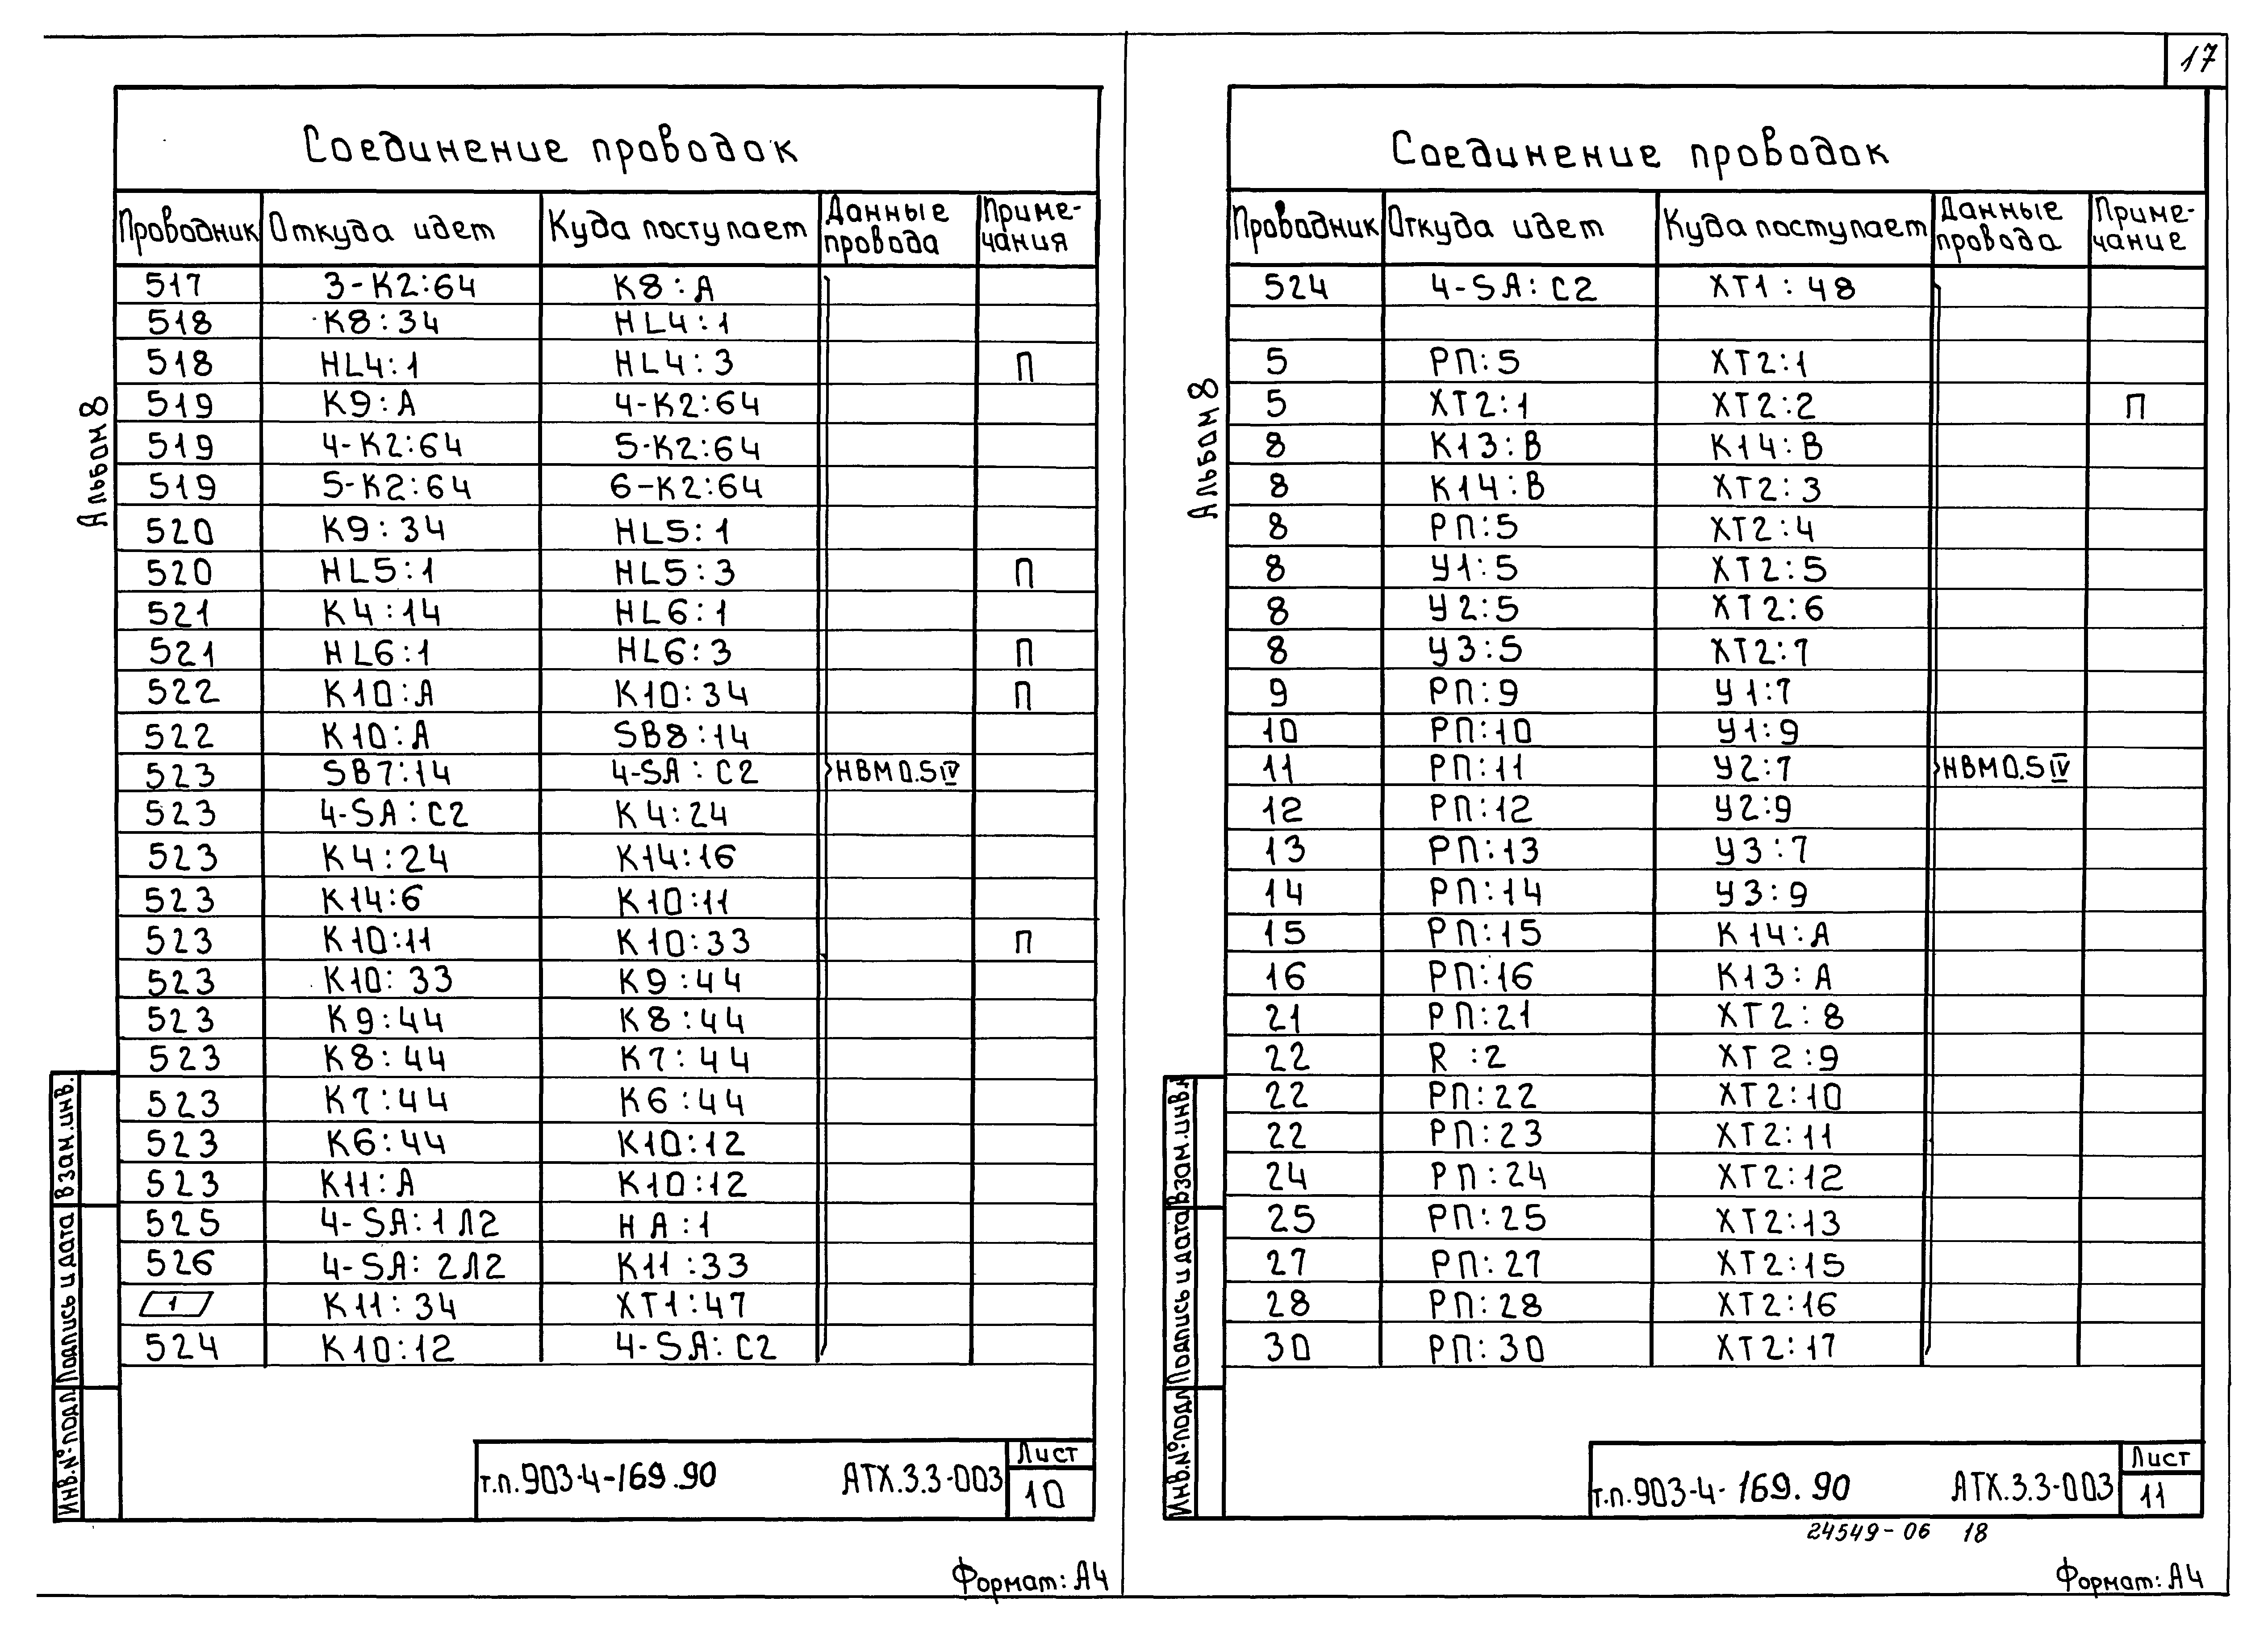 17
Соединение проводок
Проводник Откуда идет Куда поступает Данные провода Приме-чания
517 3-К2:64 К8:А
518 К8:34 HL4:1
518 HL4:1 HL4:3 П
519 К9:А 4-К2:64
519 4-К2:64 5-К2:64
519 5-К2:64 6-К2:64
520 К9:34 HL5:1
520 HL5:1 HL5:3 П
521 К4:14 HL6:1
521 HL6:1 HL6:3 П
522 К10:А К10:34 П
522 К10:А SB8:14
523 SB7:14 4-SA:C2 НВМ0.5IV
523 4-SA:C2 К4:24
523 К4:24 К14:16
523 К14:6 К10:11
523 К10:11 К10:33 П
523 К10:33 К9:44
523 К9:44 К8:44
523 К8:44 К7:44
523 К7:44 К6:44
523 К6:44 К10:12
523 К11:А К10:12
525 4-SA:1Л2 НА:1
526 4-SA:2Л2 К11:33
1 К11:34 ХТ1:47
524 К10:12 4-SA:C2
Альбом 8
Взам.инв.
Подпись и дата
Инв.№подл
т.п.903-4-169.90 АТХ.3.3-003 Лист
10
Формат:А4
Соединение проводок
Проводник Откуда идет Куда поступает Данные провода Приме-чание
524 4-SA:C2 ХТ1:48
5 РП:5 ХТ2:1
5 ХТ2:1 ХТ2:2 П
8 К13:В К14:В
8 К14:В ХТ2:3
8 РП:5 ХТ2:4
8 У1:5 ХТ2:5
8 У2:5 ХТ2:6
8 У3:5 ХТ2:7
9 РП:9 У1:7
10 РП:10 У1:9
11 РП:11 У2:7 НВМ0.5IV
12 РП:12 У2:9
13 РП:13 У3:7
14 РП:14 У3:9
15 РП:15 К14:А
16 РП:16 К13:А
21 РП:21 ХТ2:8
22 R :2 ХТ2:9
22 РП:22 ХТ2:10
22 РП:23 ХТ2:11
24 РП:24 ХТ2:12
25 РП:25 ХТ2:13
27 РП:27 ХТ2:15
28 РП:28 ХТ2:16
30 РП:30 ХТ2:17
Альбом 8
Взам.инв.
Подпись и дата
Инв.№подл
т.п.903-4-169.90 АТХ.3.3-003 Лист
11
24549-06 18
Формат:А4